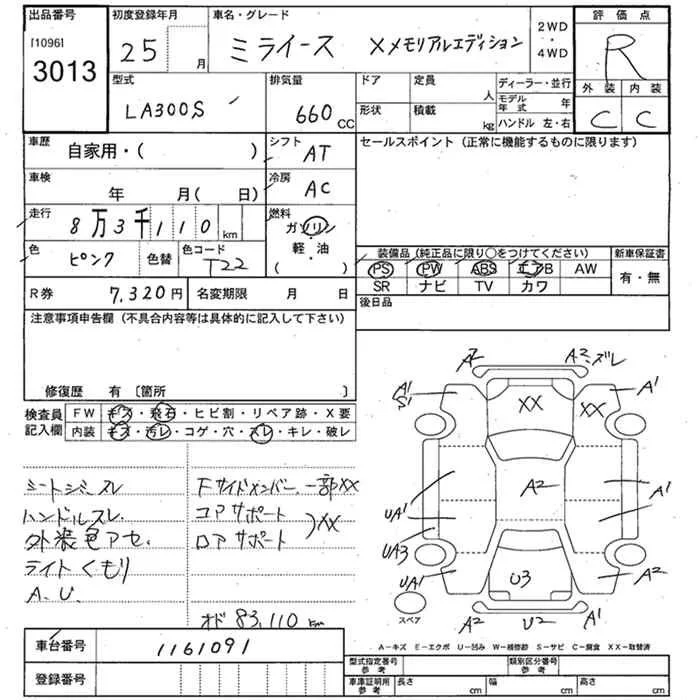 出品番号
[1096]
3013
初度登録年月
25 月
車名・グレード
ミライース Xメモリアルエディション
2WD
・
4WD
評価点
R
型式
LA300S
排気量
660 CC
ドア
定員
人
形状
積載
kg
ディーラー・並行
モデル年式 年
ハンドル 左・右
外装
内装
C
C
車歴
自家用・( )
シフト
AT
セールスポイント (正常に機能するものに限ります)
車検
年 月( 日)
冷房
AC
走行
8万3千110 km
燃料
ガソリン
軽・油
( )
色
ピンク
色替
色コード
T22
装備品 (純正品に限り○をつけてください)
新車保証書
PS PW ABS エアB AW
有・無
SR ナビ TV カワ
R券
7,320円
名変期限 月 日
後日品
注意事項申告欄 (不具合内容等は具体的に記入して下さい)
修復歴 有 〔箇所 〕
検査員
記入欄
FW キズ・飛石・ヒビ割・リペア跡・X要
内装 キズ・汚レ・コゲ・穴・スレ・キレ・破レ
シートシミ・スレ
ハンドルスレ
外装色アセ
ライトくもり
A.U.
Fサイドメンバー 一部XX
コアサポート
ロアサポート
XX
オド 83,110 km
A2
A2・ズレ
A1
S1
XX
XX
A1
A2
UA1
A1
UA3
UA1
U3
A2
A2
U2
A1
スペア
A-キズ E-エクボ U-凹み W-補修跡 S-サビ C-腐食 XX-取替済
車台番号
1161091
登録番号
型式指定番号
参考
類別区分番号
参考
車庫証明用
参考
長さ cm
幅 cm
高さ cm